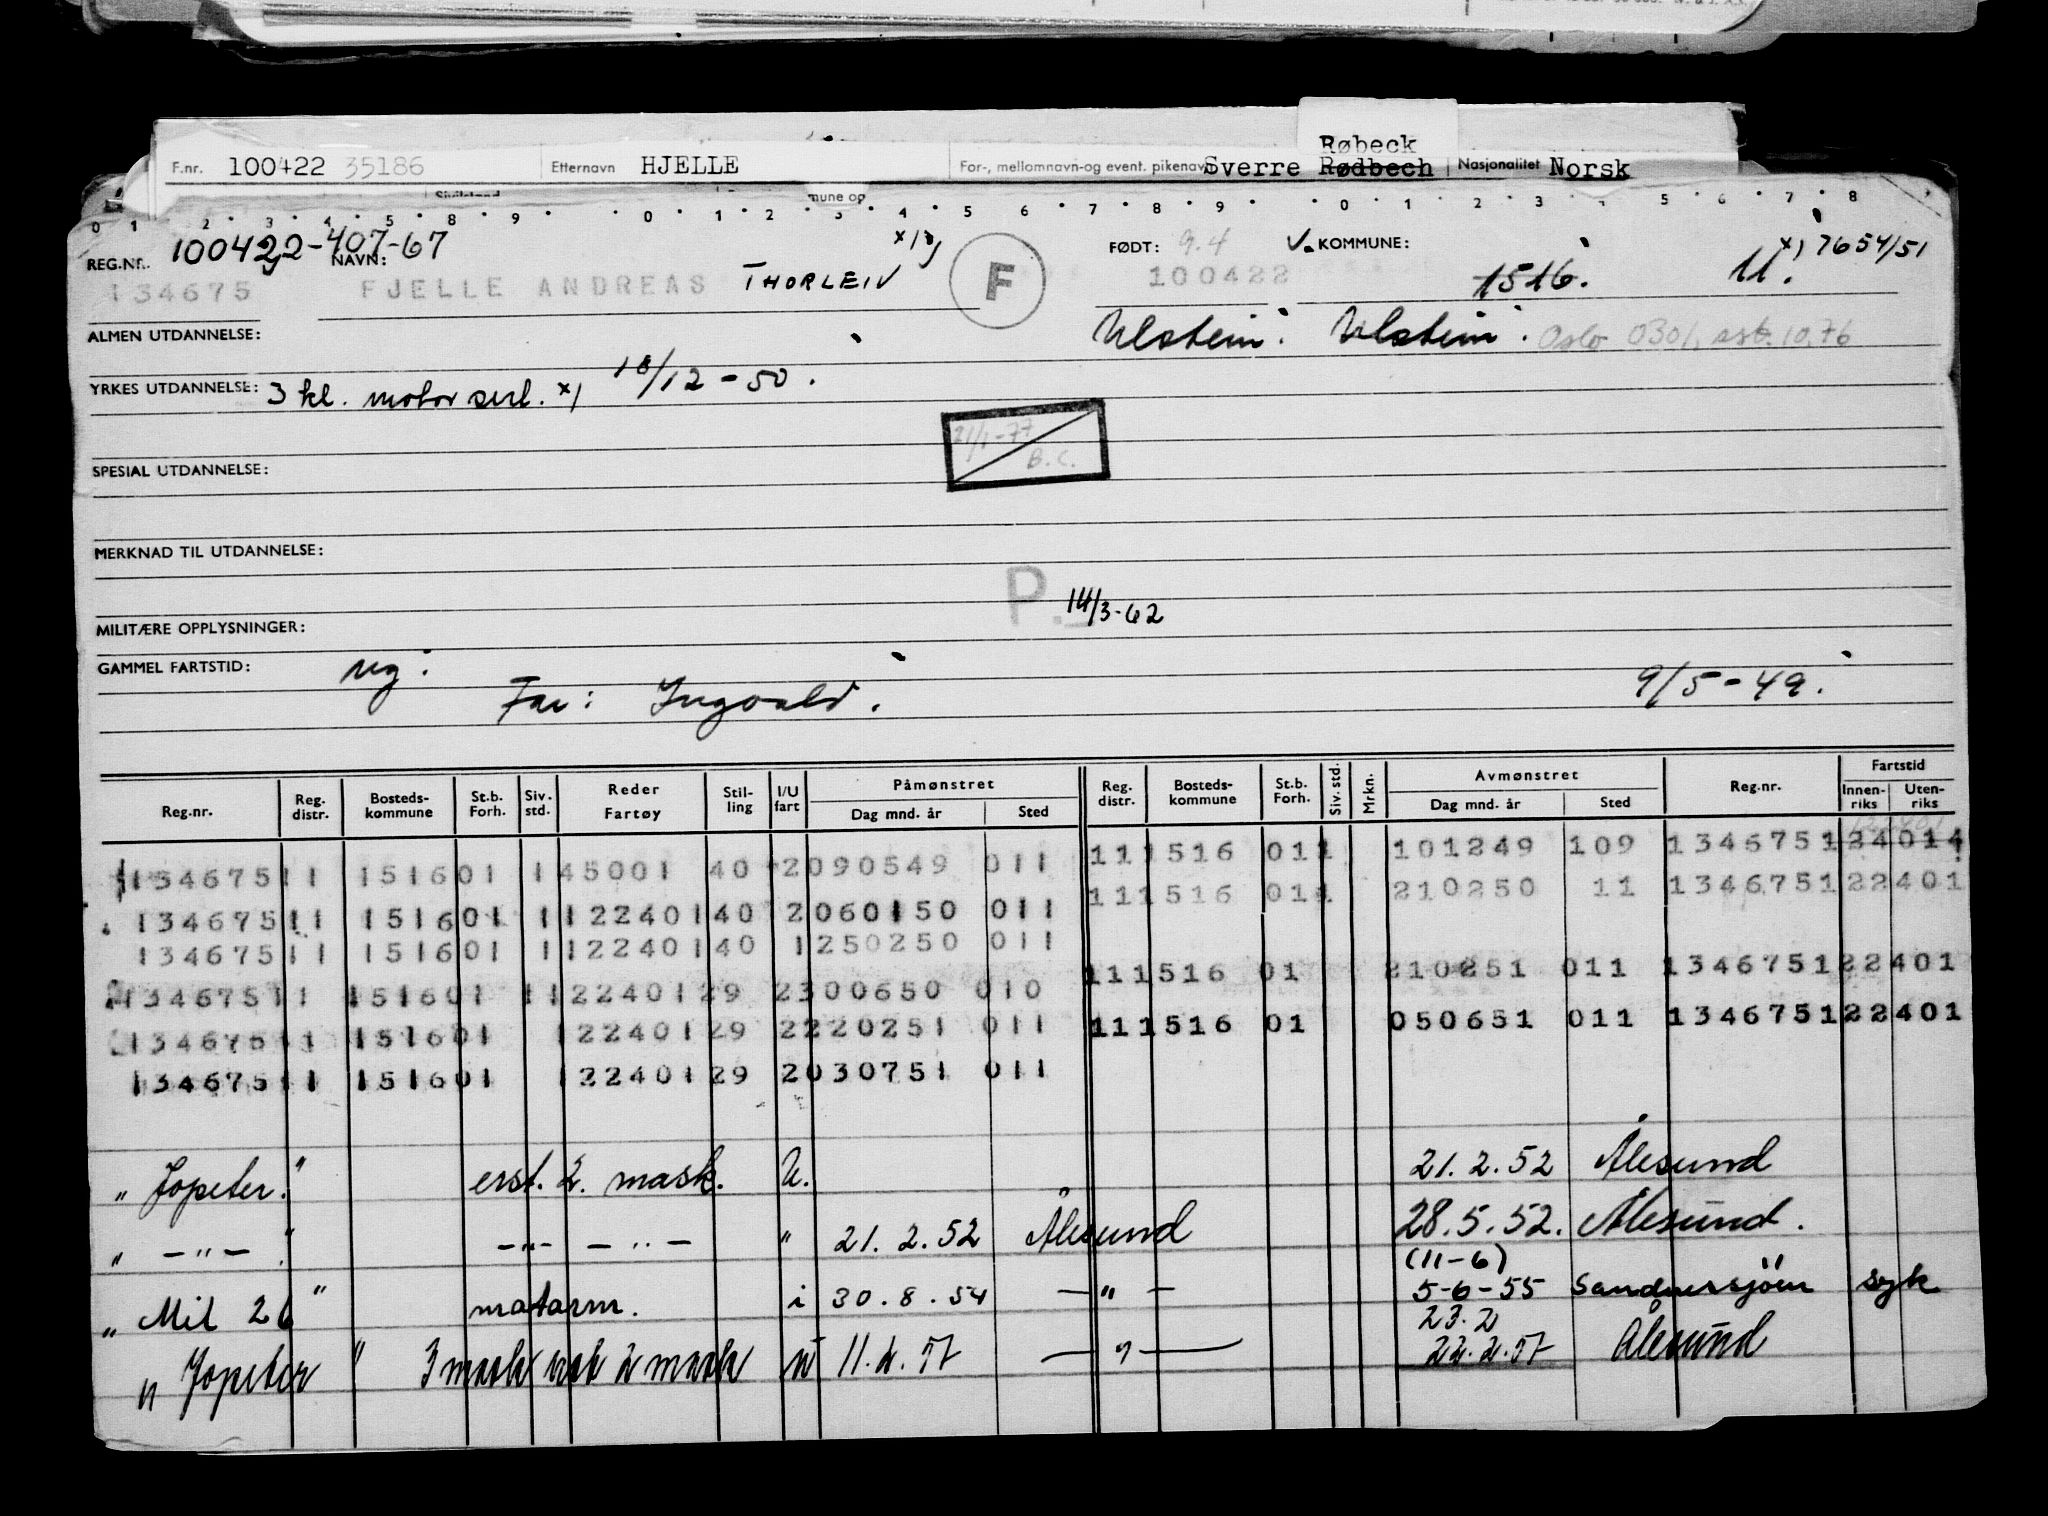 Røbeck
F.nr. 100422 35186 Etternavn HJELLE For-, mellomnavn-og event. pikenavn Sverre Rødbech Nasjonalitet Norsk
mune og
0 1 2 3 4 5 8 9 0 1 2 3 4 5 6 7 8 9 0 1 2 3 4 5 6 7 8
REG.NR. 100422-407-67 NAVN: FØDT: 9.4 V. KOMMUNE: x) 7654/51
134675 FJELLE ANDREAS THORLEIV F 100422 1516. U.
ALMEN UTDANNELSE: Ulstein. Ulstein. Oslo 0301, 10.76
YRKES UTDANNELSE: 3 kl. motor sert. x) 18/12-50.
21/1-77
B.C.
SPESIAL UTDANNELSE:
MERKNAD TIL UTDANNELSE:
P. 14/3-62
MILITÆRE OPPLYSNINGER:
GAMMEL FARTSTID: ug.
Far: Ingvald. 9/5-49.
Reg.nr. Reg. distr. Bosteds-kommune St.b. Forh. Siv. std. Reder Fartøy Stil-ling I/U fart Påmønstret Dag mnd. år Sted Reg. distr. Bosteds-kommune St.b. Forh. Siv. std. Mrkn. Avmønstret Dag mnd. år Sted Reg.nr. Fartstid Innen-riks Uten-riks
13467511 151601 145001 40 2090549 011 111516 011 101249 109 134675124014
13467511 151601 112240140 2060150 011 111516 011 210250 11 134675122401
13467511 151601 112240140 1250250 011
13467511 151601 112240129 2300650 010 111516 01 210251 011 134675122401
13467511 151601 12240129 2220251 011 111516 01 050651 011 134675122401
13467511 151601 12240129 2030751 011
"Jopeter." erst. 2. mask. U. 21.2.52 Ålesund
" — " — " — " — — " — " 21.2.52 Ålesund 28.5.52. Ålesund.
(11-6)
"Mil 26" matarm. i 30.8.54 — " — 5-6-55 Sandnessjöen syk
23.2
"Jopeter" 3 mask 2 mask u 11.2.57 — " — 22.2.57 Ålesund